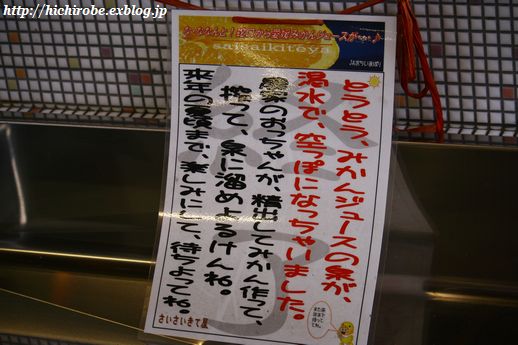 http://hichirobe.exblog.jp/
な・な・なんと!蛇口から愛媛みかんジュースが・・・♪
saisaikiteya
JAおちいまばり
とうとう、みかんジュースの泉が、
渇水で、空っぽになっちゃいました。
農家のおっちゃんが、精出してみかん作て、
搾って、泉に溜めよるけんね。
来年の夏まで、楽しみにして、待ちよってね。
さいさいきて屋